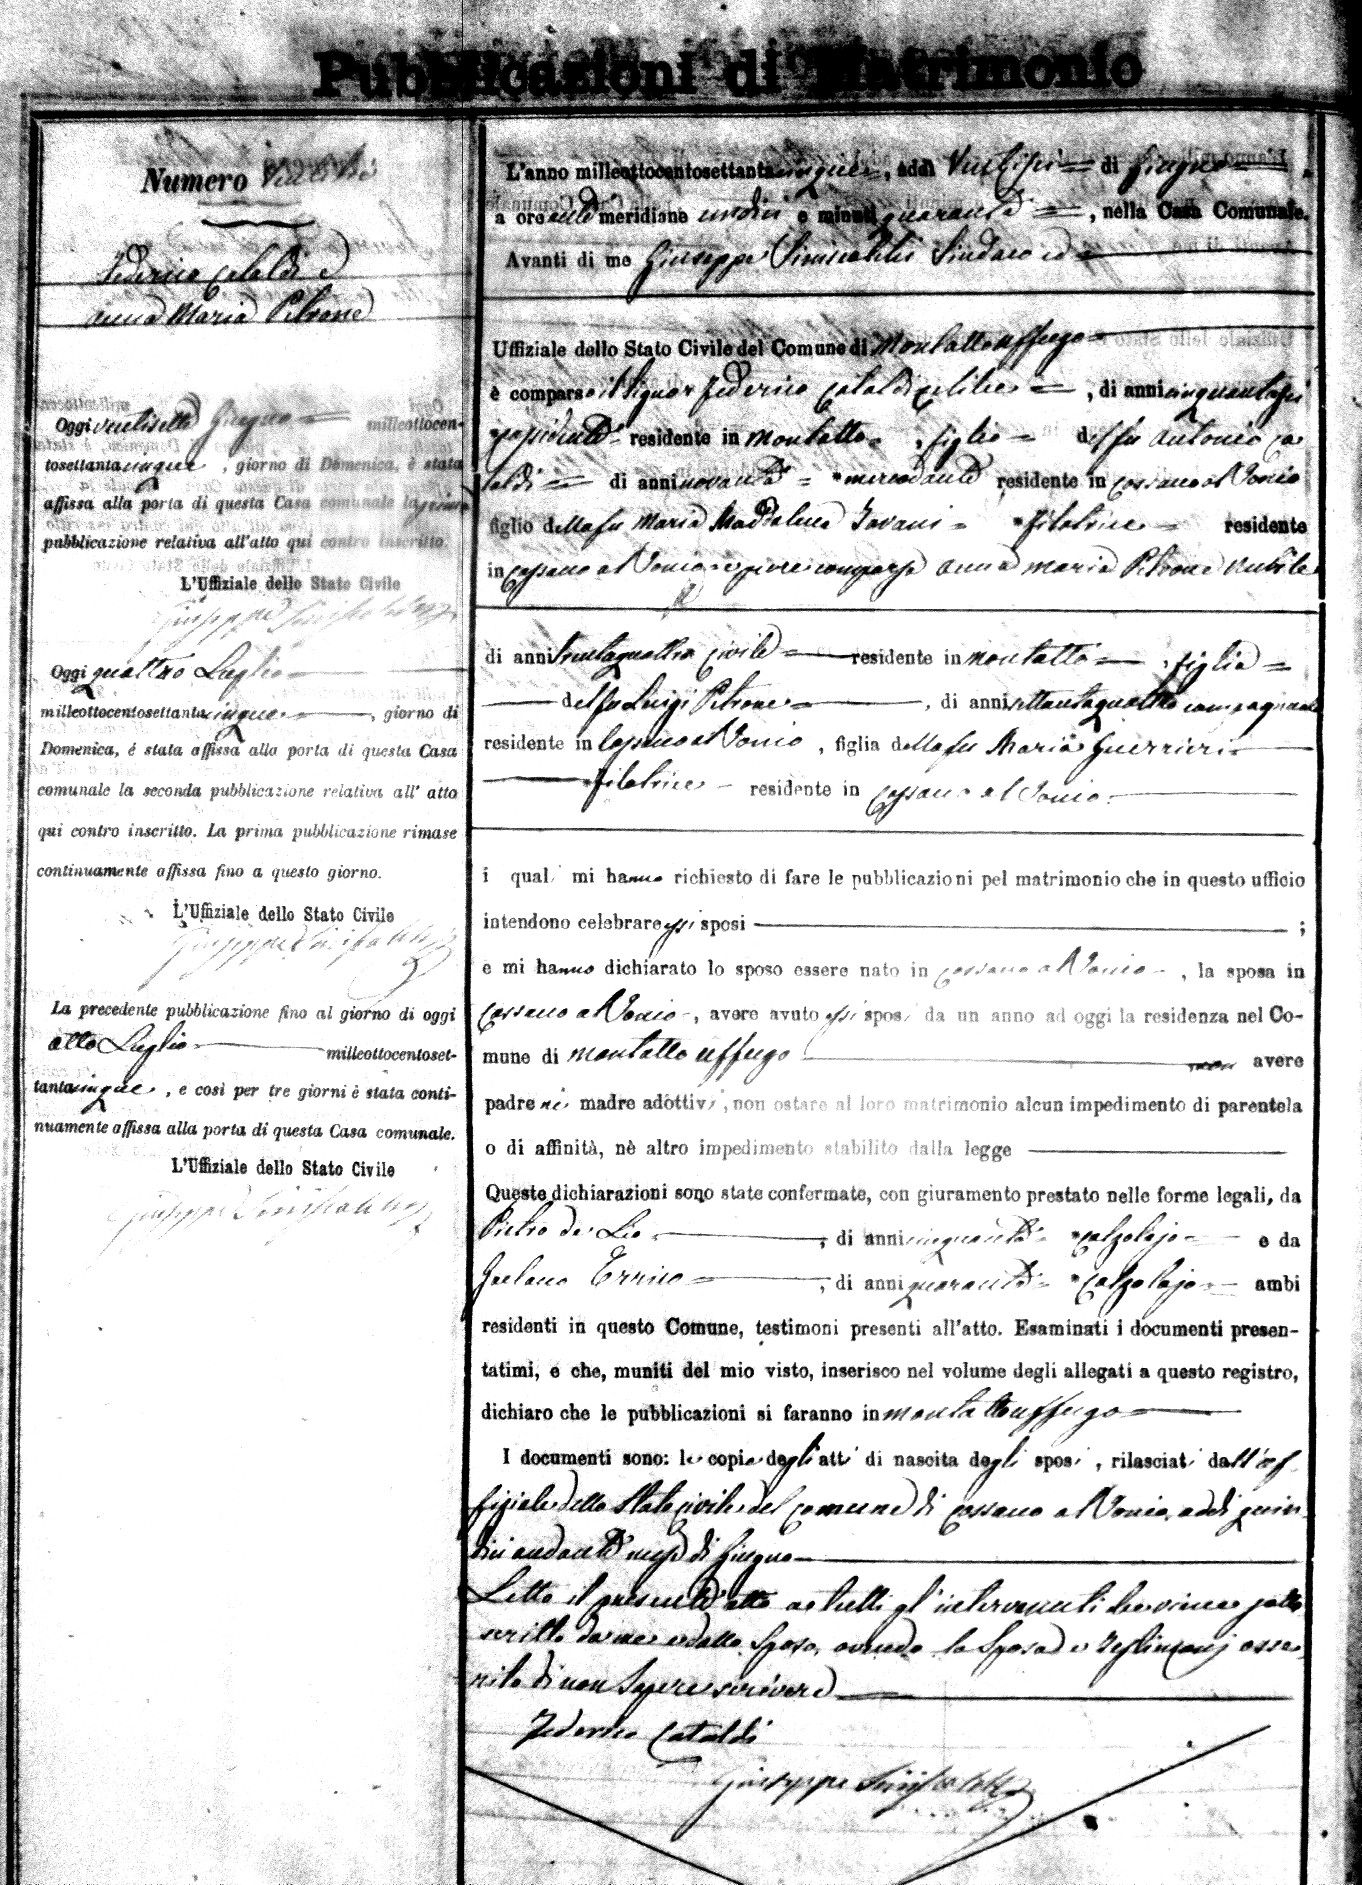 Pubblicazioni di Matrimonio
Numero
Federico Cataldi e
Anna Maria Pitrone
Oggi ventisette Giugno milleottocen-
tosettantacinque, giorno di Domenica, è stata
affissa alla porta di questa Casa comunale la prima
pubblicazione relativa all'atto qui contro inscritto.
L'Uffiziale dello Stato Civile
Giuseppe
Oggi quattro Luglio
milleottocentosettantacinque, giorno di
Domenica, é stata affissa alla porta di questa Casa
comunale la seconda pubblicazione relativa all' atto
qui contro inscritto. La prima pubblicazione rimase
continuamente affissa fino a questo giorno.
L'Uffiziale dello Stato Civile
Giuseppe
La precedente pubblicazione fino al giorno di oggi
otto Luglio milleottocentoset-
tantacinque, e così per tre giorni è stata conti-
nuamente affissa alla porta di questa Casa comunale.
L'Uffiziale dello Stato Civile
Giuseppe
L'anno milleottocentosettantacinque, addì Ventisei di Giugno
a ore anti meridiane undici e minuti quaranta, nella Casa Comunale.
Avanti di me Giuseppe Sindaco ed
Uffiziale dello Stato Civile del Comune di Montalto Uffugo
è comparso il Signor Federico Cataldi celibe, di anni cinquantasei
possidente residente in Montalto, figlio del fu Antonio Ca
taldi di anni novanta mercadante residente in Cassano al Jonio
figlio della fu Maria Maddalena filatrice residente
in Cassano al Jonio e pure comparsa Anna Maria Pitrone nubile
di anni trentaquattro civile residente in Montalto, figlia
del fu Luigi Pitrone, di anni settantaquattro
residente in Cassano al Jonio, figlia della fu Maria Guerrieri
filatrice residente in Cassano al Jonio
i quali mi hanno richiesto di fare le pubblicazioni pel matrimonio che in questo ufficio
intendono celebrare essi sposi ;
e mi hanno dichiarato lo sposo essere nato in Cassano al Jonio, la sposa in
Cassano al Jonio, avere avuto essi sposi da un anno ad oggi la residenza nel Co-
mune di Montalto Uffugo non avere
padre nè madre adottivi, non ostare al loro matrimonio alcun impedimento di parentela
o di affinità, nè altro impedimento stabilito dalla legge
Queste dichiarazioni sono state confermate, con giuramento prestato nelle forme legali, da
Pietro de Lio, di anni cinquanta calzolajo e da
Gaetano Errico, di anni quaranta calzolajo ambi
residenti in questo Comune, testimoni presenti all'atto. Esaminati i documenti presen-
tatimi, e che, muniti del mio visto, inserisco nel volume degli allegati a questo registro,
dichiaro che le pubblicazioni si faranno in Montalto Uffugo
I documenti sono: le copie degli atti di nascita degli sposi, rilasciati dall'uf
fiziale dello Stato civile del comune di Cassano al Jonio, addì quin
dici andante mese di Giugno
Letto il presente atto a tutti gl'intervenuti che viene sotto
scritto da me e dallo Sposo, avendo la Sposa e Testimonj asse
rito di non sapere scrivere
Federico Cataldi
Giuseppe